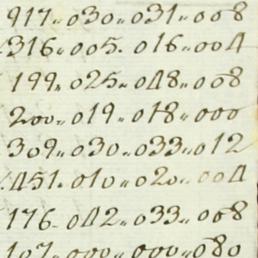 917.. 030.. 031.. 008
316.. 005. 016.. 004
199.. 025.. 048.. 008
200.. 019.. 018.. 000
309.. 030.. 033.. 012
451. 010.. 020.. 004
176. 042.. 033.. 008
107.. 000.. 000.. 080